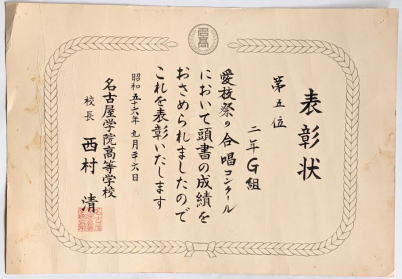 表彰状
第五位
二年G組
愛校祭の合唱コンクール
において頭書の成績を
おさめられましたので
これを表彰いたします
昭和五十六年九月二十六日
名古屋学院高等学校
校長 西村 清
名高